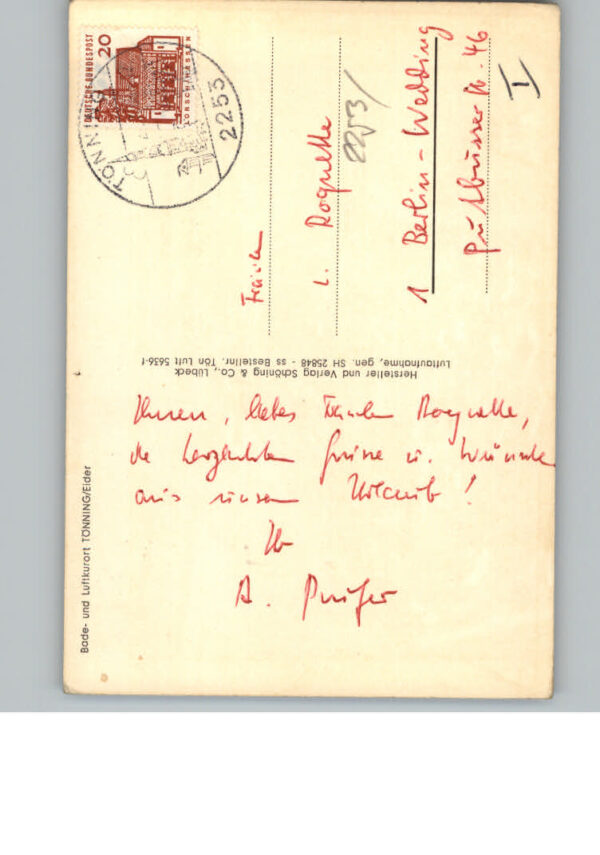 DEUTSCHE BUNDESPOST
20
LORSCH/HESSEN
TÖNN
2253
Fräulein
L. Roquette
2253/
1 Berlin-Wedding
Putbusser Str. 46
I
Hersteller und Verlag Schöning & Co., Lübeck
Luftaufnahme, gen. SH 25848 - ss Bestellnr. Tön Luft 5636-f
Bade- und Luftkurort TÖNNING/Eider
Ihnen, liebes Fräulein Roquette,
die herzlichsten Grüße u. Wünsche
aus unserem Urlaub!
Ihr
A.